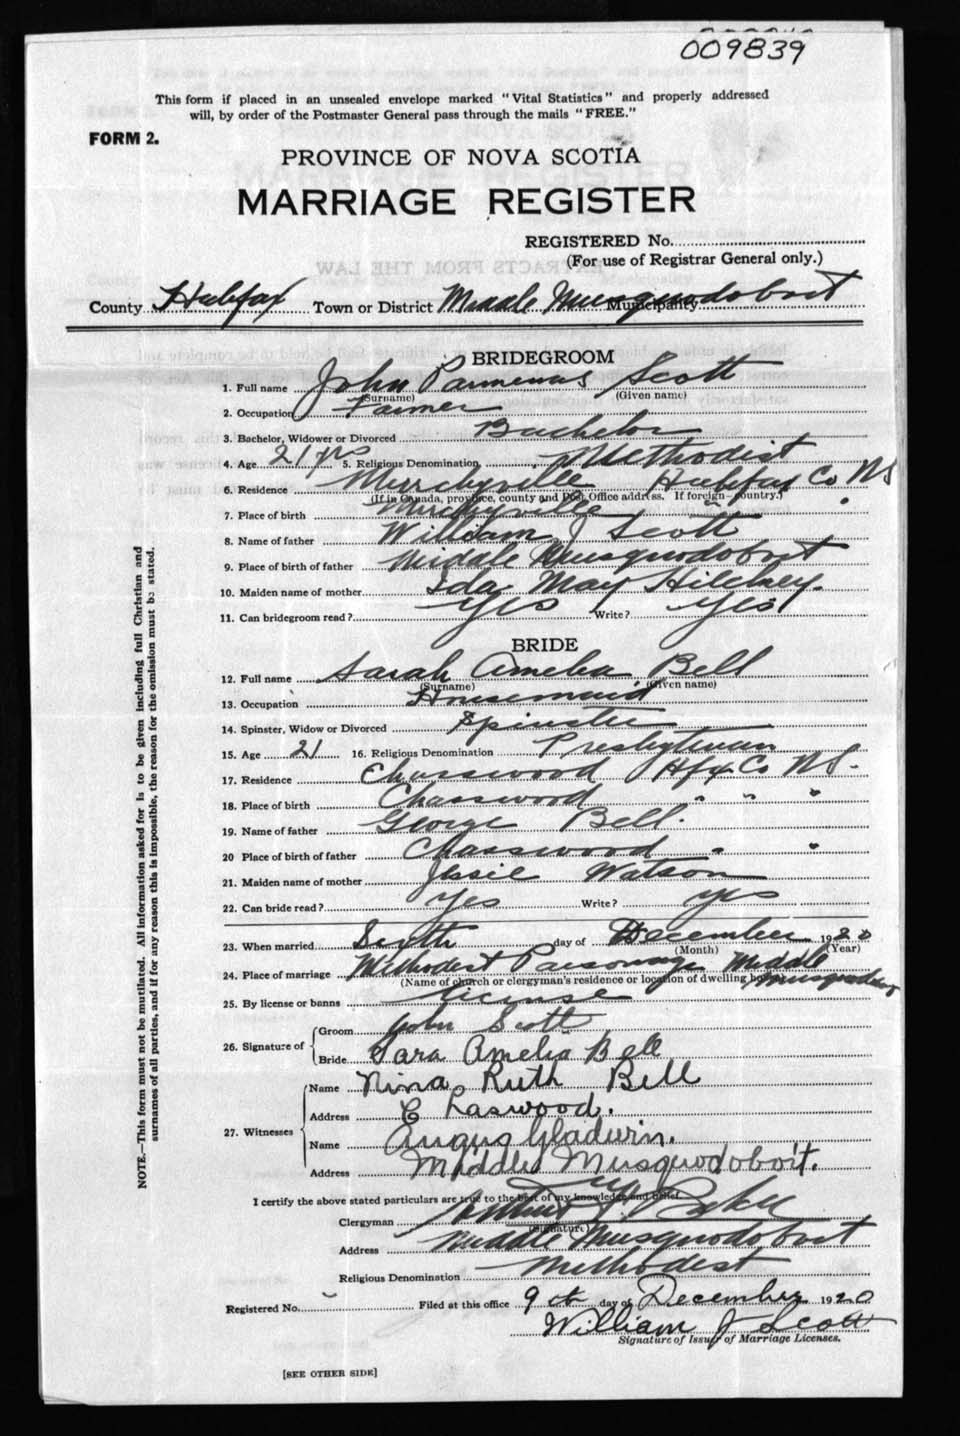 009839
This form if placed in an unsealed envelope marked "Vital Statistics" and properly addressed
will, by order of the Postmaster General pass through the mails "FREE."
FORM 2.
PROVINCE OF NOVA SCOTIA
MARRIAGE REGISTER
REGISTERED No.
(For use of Registrar General only.)
County Halifax Town or District Middle Musquodoboit Municipality
BRIDEGROOM
1. Full name John Parmenas Scott
(Surname) (Given name)
2. Occupation Farmer
3. Bachelor, Widower or Divorced Bachelor
4. Age 21 yrs 5. Religious Denomination Methodist
6. Residence Murchyville Halifax Co NS
(If in Canada, province, county and Post Office address. If foreign country.)
7. Place of birth Murchyville " "
8. Name of father William J Scott
9. Place of birth of father Middle Musquodoboit
10. Maiden name of mother Ida May Hilchey.
11. Can bridegroom read? Yes Write? Yes
BRIDE
12. Full name Sarah Amelia Bell
(Surname) (Given name)
13. Occupation Housemaid
14. Spinster, Widow or Divorced Spinster
15. Age 21 16. Religious Denomination Presbyterian
17. Residence Chasswood Hfx Co NS.
18. Place of birth Chasswood " " "
19. Name of father George Bell.
20 Place of birth of father Chasswood " "
21. Maiden name of mother Jessie Watson
22. Can bride read? Yes Write? yes
23. When married Sixth day of December 1920
(Month) (Year)
24. Place of marriage Methodist Parsonage Middle Musquodoboit
(Name of church or clergyman's residence or location of dwelling
25. By license or banns License
26. Signature of Groom John Scott
Bride Sara Amelia Bell
27. Witnesses
Name Nina Ruth Bell
Address Chaswood.
Name Angus Gladwin.
Address Middle Musquodoboit.
I certify the above stated particulars are true to the best of my knowledge and belief.
Clergyman
(Signature)
Address Middle Musquodoboit
Religious Denomination Methodist
Registered No. Filed at this office 9th day of December 1920
William J Scott
Signature of Issuer of Marriage Licenses.
[SEE OTHER SIDE]
NOTE.—This form must not be mutilated. All information asked for is to be given including full Christian and
surnames of all parties, and if for any reason this is impossible, the reason for the omission must be stated.